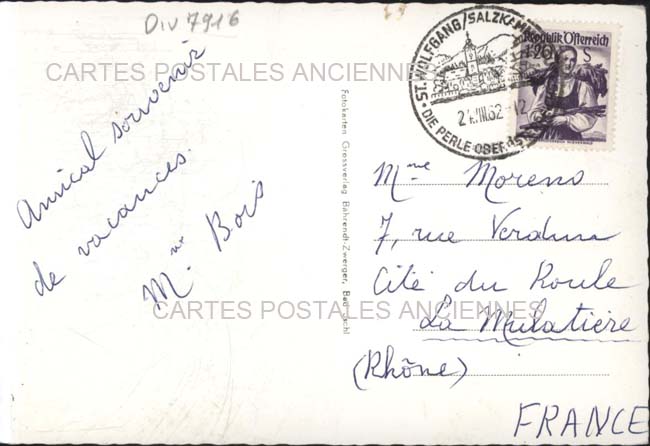 Div 7916
Amical souvenir
de vacances.
Mme Bois
Fotokarten Grossverlag Bahrendt-Zwerger, Bad Ischl
ST. WOLFGANG/SALZKAM
21.III.62-12
DIE PERLE OBERÖST
Republik Österreich
1·20 S
Mme Moreno
7, rue Verdun
Cité du Roule
La Mulatière
(Rhône)
FRANCE
CARTES POSTALES ANCIENNES
CARTES POSTALES ANCIENNES